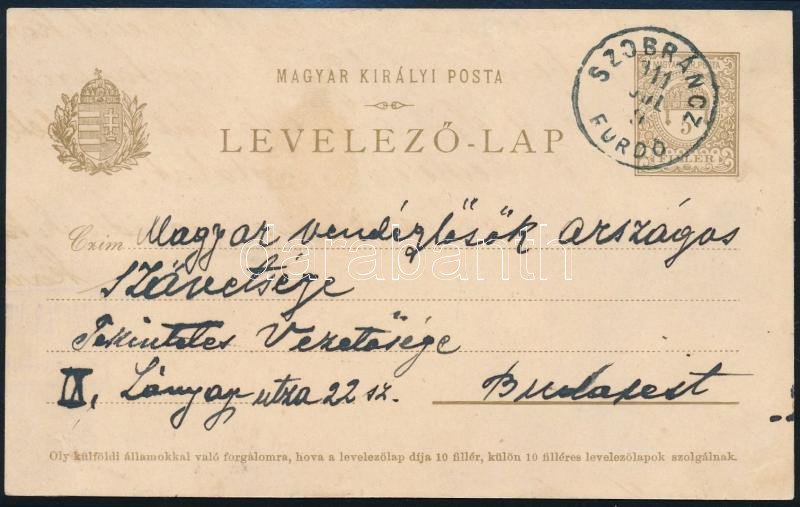 MAGYAR KIRÁLYI POSTA
LEVELEZŐ-LAP
SZOBRÁNCZ
911
JUL
FÜRDŐ
5
FILLÉR
Czim Magyar vendéglősök országos
Szövetsége
Tekintetes Vezetősége
IX, Lónyay utza 22 sz. Budapest
darabanth
Oly külföldi államokkal való forgalomra, hova a levelezőlap díja 10 fillér, külön 10 filléres levelezőlapok szolgálnak.